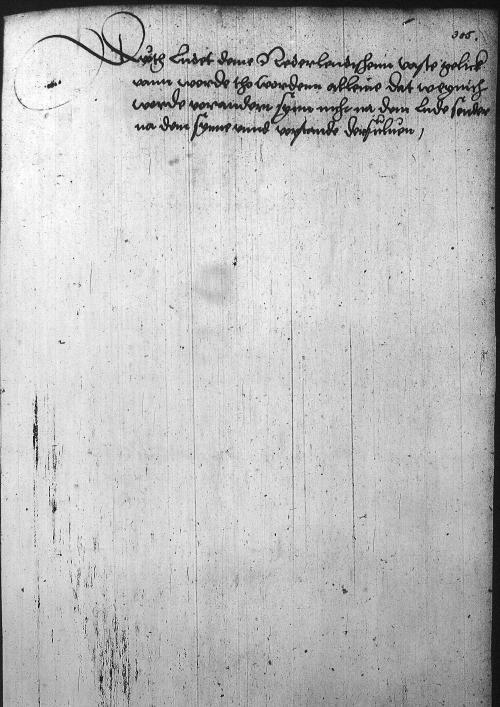 305.
Dyth Ludet deme Nederlendischenn vaste gelick
vann worde tho wordenn alleine dat wegnich
worde vorandert synn nicht na dem lude sonder
na dem synne vnnd vorstande desuluen,